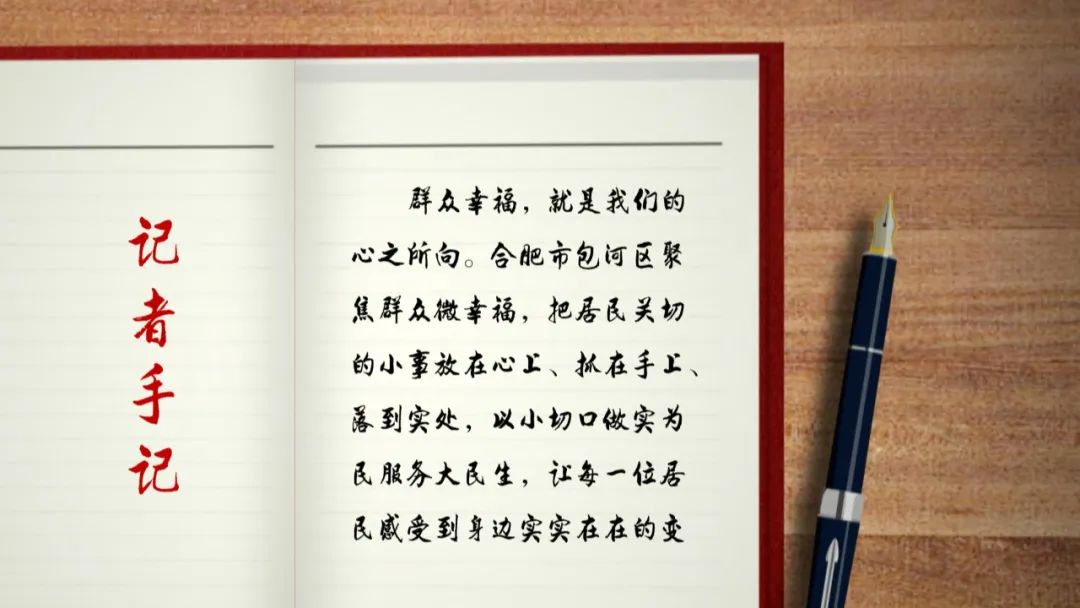 记者手记
群众幸福，就是我们的
心之所向。合肥市包河区聚
焦群众微幸福，把居民关切
的小事放在心上、抓在手上、
落到实处，以小切口做实为
民服务大民生，让每一位居
民感受到身边实实在在的变